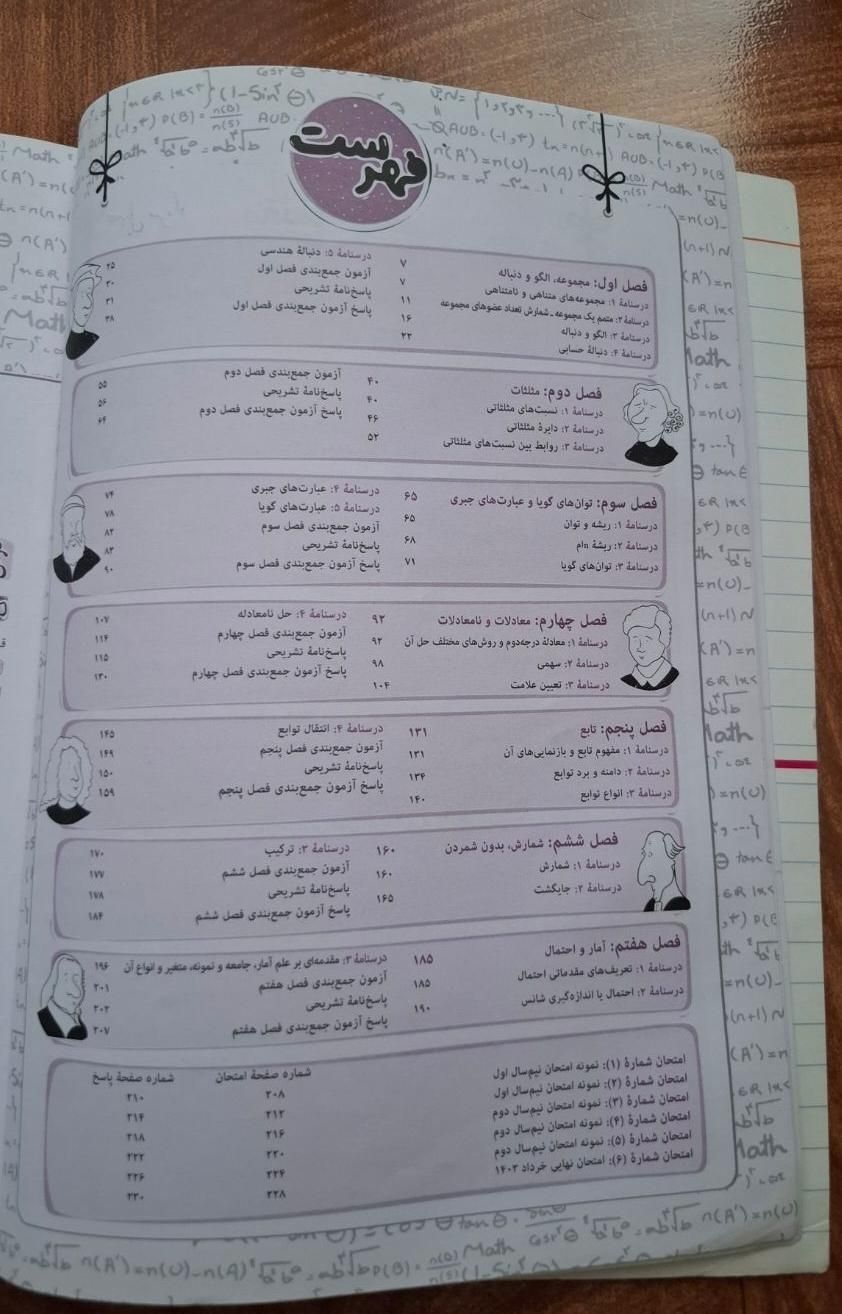 فهرست
فصل اول: مجموعه، الگو و دنباله ۷
درسنامهٔ ۱: مجموعه‌های متناهی و نامتناهی ۷
درسنامهٔ ۲: متمم یک مجموعه ـ شمارش تعداد عضوهای مجموعه ۱۱
درسنامهٔ ۳: الگو و دنباله ۱۶
درسنامهٔ ۴: دنبالهٔ حسابی ۲۲
درسنامهٔ ۵: دنبالهٔ هندسی ۲۵
آزمون جمع‌بندی فصل اول ۳۰
پاسخ‌نامهٔ تشریحی ۳۱
پاسخ آزمون جمع‌بندی فصل اول ۳۸
فصل دوم: مثلثات ۴۰
درسنامهٔ ۱: نسبت‌های مثلثاتی ۴۰
درسنامهٔ ۲: دایرهٔ مثلثاتی ۴۶
درسنامهٔ ۳: روابط بین نسبت‌های مثلثاتی ۵۲
آزمون جمع‌بندی فصل دوم ۵۵
پاسخ‌نامهٔ تشریحی ۵۶
پاسخ آزمون جمع‌بندی فصل دوم ۶۴
فصل سوم: توان‌های گویا و عبارت‌های جبری ۶۵
درسنامهٔ ۱: ریشه و توان ۶۵
درسنامهٔ ۲: ریشهٔ nام ۶۸
درسنامهٔ ۳: توان‌های گویا ۷۱
درسنامهٔ ۴: عبارت‌های جبری ۷۴
درسنامهٔ ۵: عبارت‌های گویا ۷۸
آزمون جمع‌بندی فصل سوم ۸۲
پاسخ‌نامهٔ تشریحی ۸۳
پاسخ آزمون جمع‌بندی فصل سوم ۹۰
فصل چهارم: معادلات و نامعادلات ۹۲
درسنامهٔ ۱: معادلهٔ درجه‌دوم و روش‌های مختلف حل آن ۹۲
درسنامهٔ ۲: سهمی ۹۸
درسنامهٔ ۳: تعیین علامت ۱۰۴
درسنامهٔ ۴: حل نامعادله ۱۰۷
آزمون جمع‌بندی فصل چهارم ۱۱۴
پاسخ‌نامهٔ تشریحی ۱۱۵
پاسخ آزمون جمع‌بندی فصل چهارم ۱۳۰
فصل پنجم: تابع ۱۳۱
درسنامهٔ ۱: مفهوم تابع و بازنمایی‌های آن ۱۳۱
درسنامهٔ ۲: دامنه و برد توابع ۱۳۴
درسنامهٔ ۳: انواع توابع ۱۴۰
درسنامهٔ ۴: انتقال توابع ۱۴۵
آزمون جمع‌بندی فصل پنجم ۱۴۹
پاسخ‌نامهٔ تشریحی ۱۵۰
پاسخ آزمون جمع‌بندی فصل پنجم ۱۵۹
فصل ششم: شمارش، بدون شمردن ۱۶۰
درسنامهٔ ۱: شمارش ۱۶۰
درسنامهٔ ۲: جایگشت ۱۶۵
درسنامهٔ ۳: ترکیب ۱۷۰
آزمون جمع‌بندی فصل ششم ۱۷۷
پاسخ‌نامهٔ تشریحی ۱۷۸
پاسخ آزمون جمع‌بندی فصل ششم ۱۸۴
فصل هفتم: آمار و احتمال ۱۸۵
درسنامهٔ ۱: تعریف‌های مقدماتی احتمال ۱۸۵
درسنامهٔ ۲: احتمال یا اندازه‌گیری شانس ۱۹۰
درسنامهٔ ۳: مقدمه‌ای بر علم آمار، جامعه و نمونه، متغیر و انواع آن ۱۹۶
آزمون جمع‌بندی فصل هفتم ۲۰۱
پاسخ‌نامهٔ تشریحی ۲۰۲
پاسخ آزمون جمع‌بندی فصل هفتم ۲۰۷
شماره صفحهٔ امتحان شماره صفحهٔ پاسخ
امتحان شمارهٔ (۱): نمونه امتحان نیم‌سال اول ۲۰۸ ۲۱۰
امتحان شمارهٔ (۲): نمونه امتحان نیم‌سال اول ۲۱۲ ۲۱۴
امتحان شمارهٔ (۳): نمونه امتحان نیم‌سال دوم ۲۱۶ ۲۱۸
امتحان شمارهٔ (۴): نمونه امتحان نیم‌سال دوم ۲۲۰ ۲۲۲
امتحان شمارهٔ (۵): نمونه امتحان نیم‌سال دوم ۲۲۴ ۲۲۶
امتحان شمارهٔ (۶): امتحان نهایی خرداد ۱۴۰۳ ۲۲۸ ۲۳۰